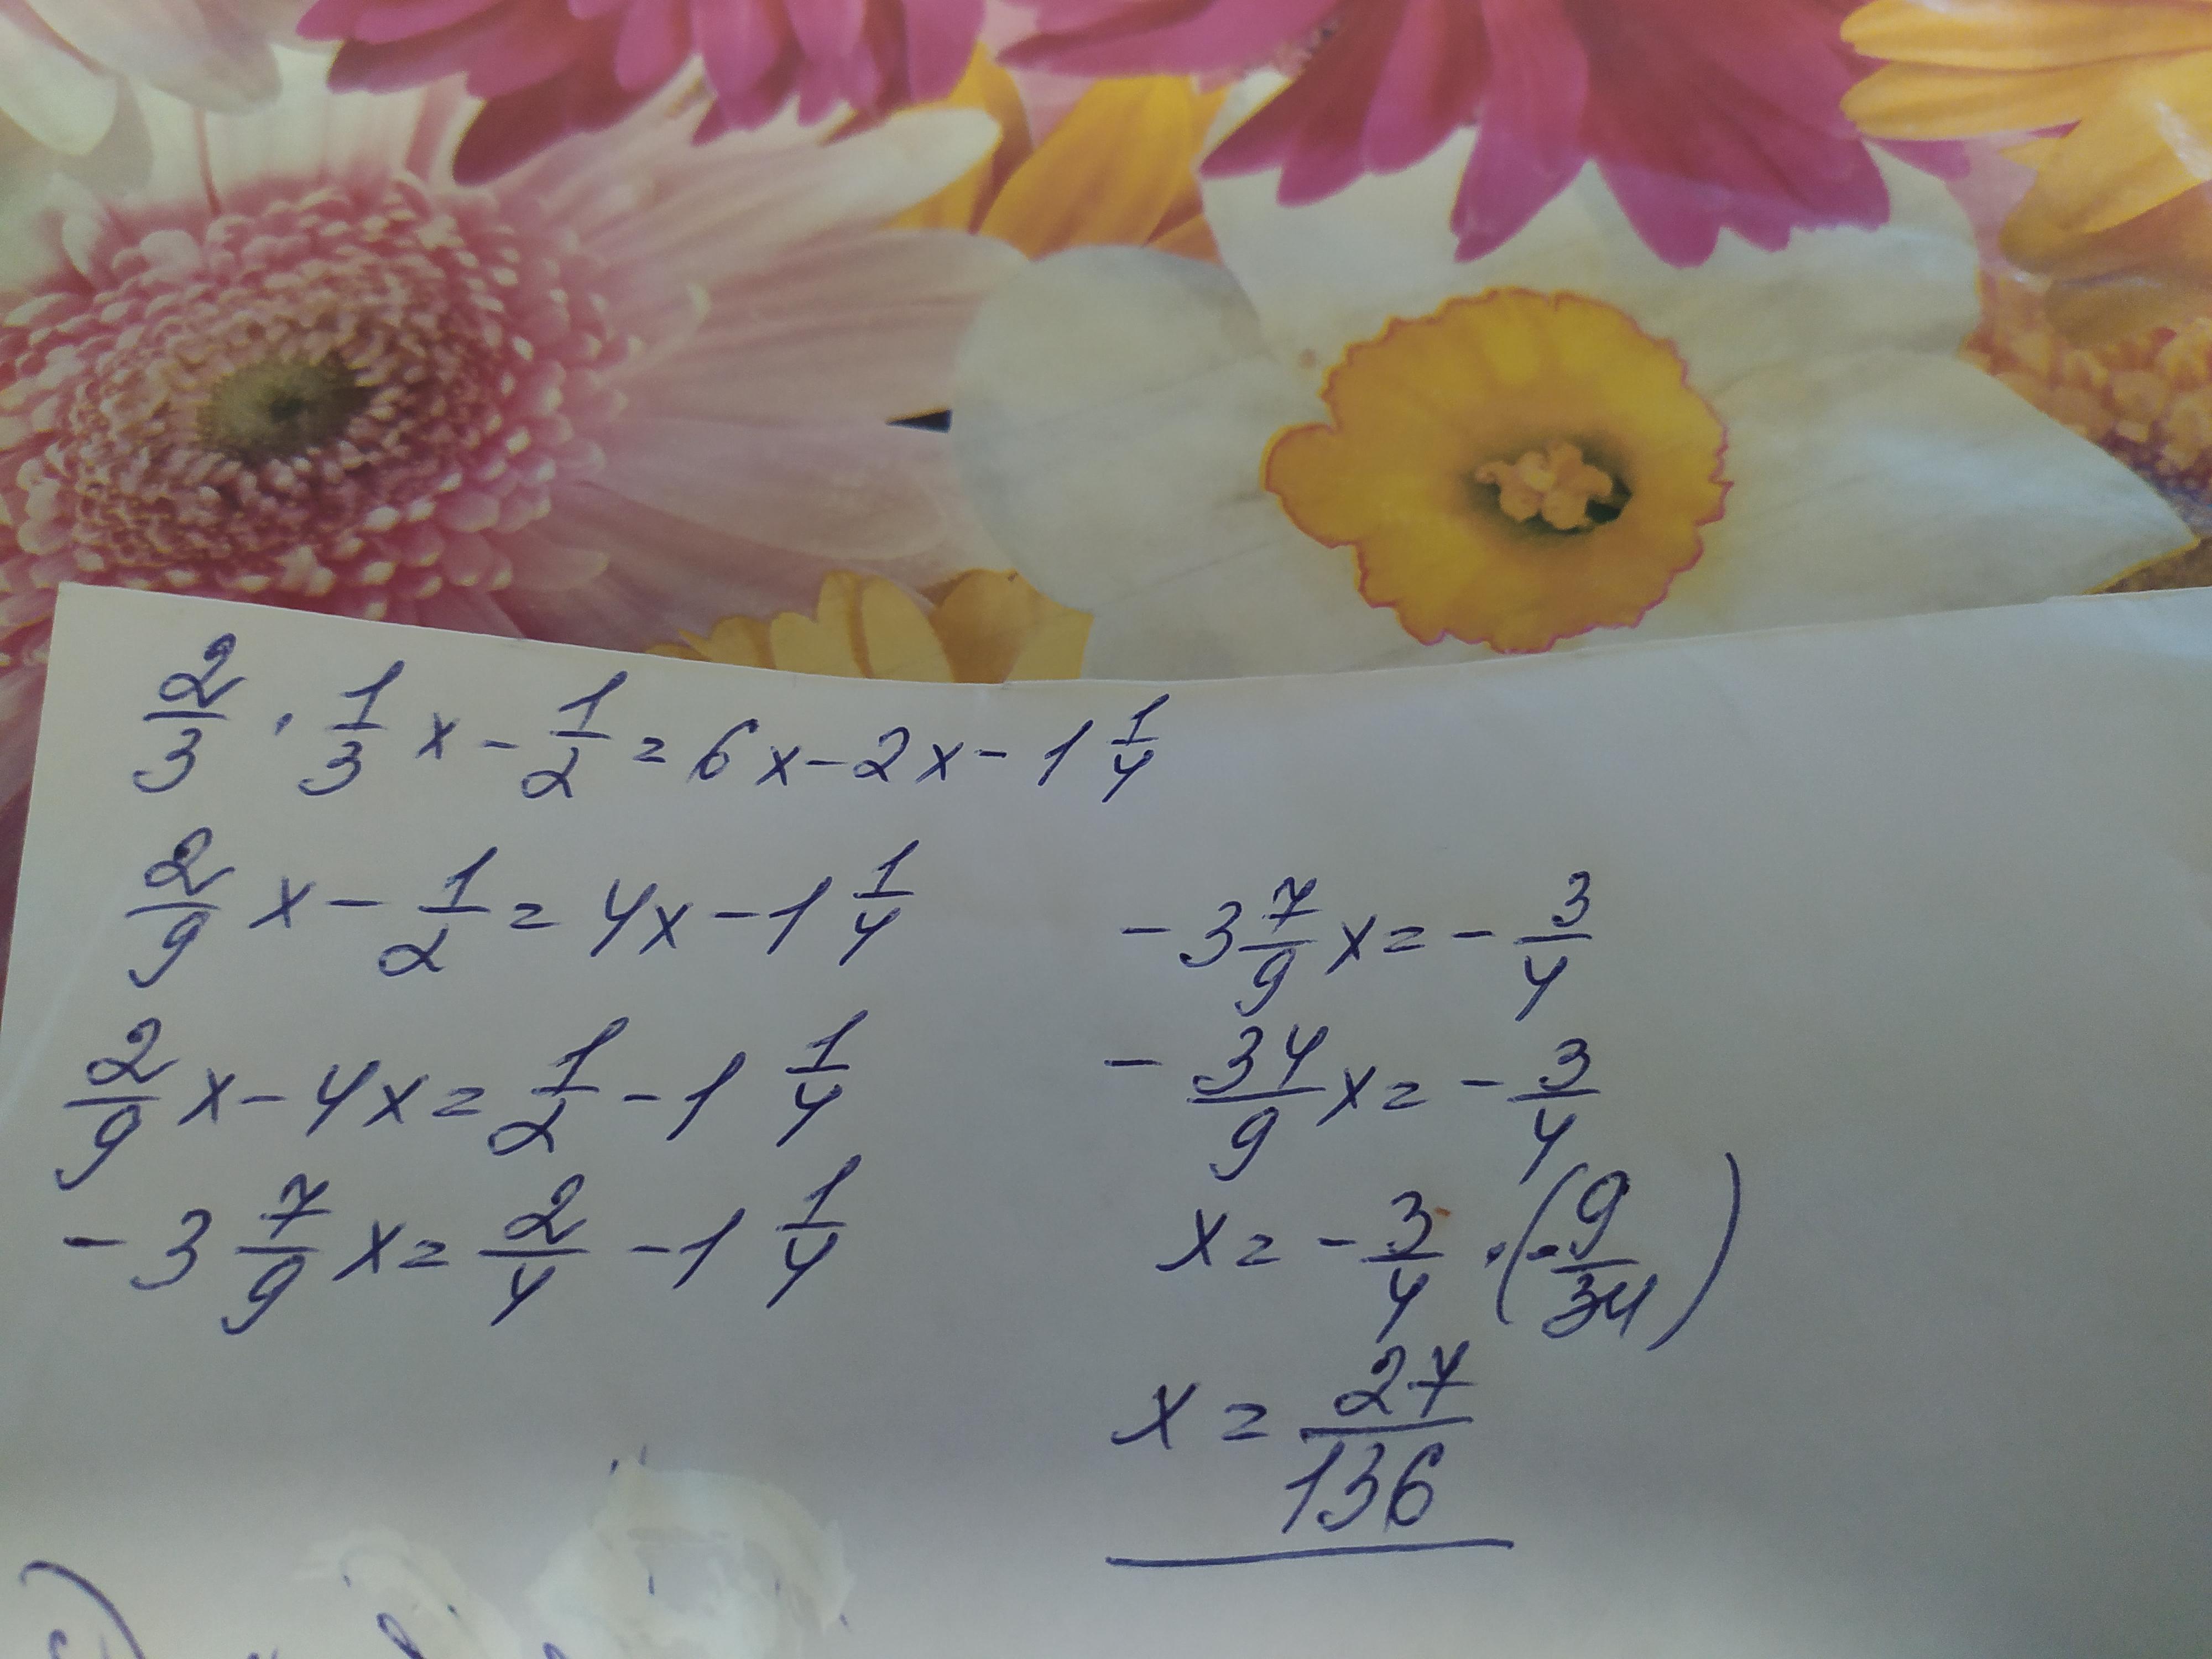 2/3 · 1/3 x - 1/2 = 6x - 2x - 1 1/4
2/9 x - 1/2 = 4x - 1 1/4
2/9 x - 4x = 1/2 - 1 1/4
- 3 7/9 x = 2/4 - 1 1/4
- 3 7/9 x = - 3/4
- 34/9 x = - 3/4
x = - 3/4 · (- 9/34)
x = 27/136